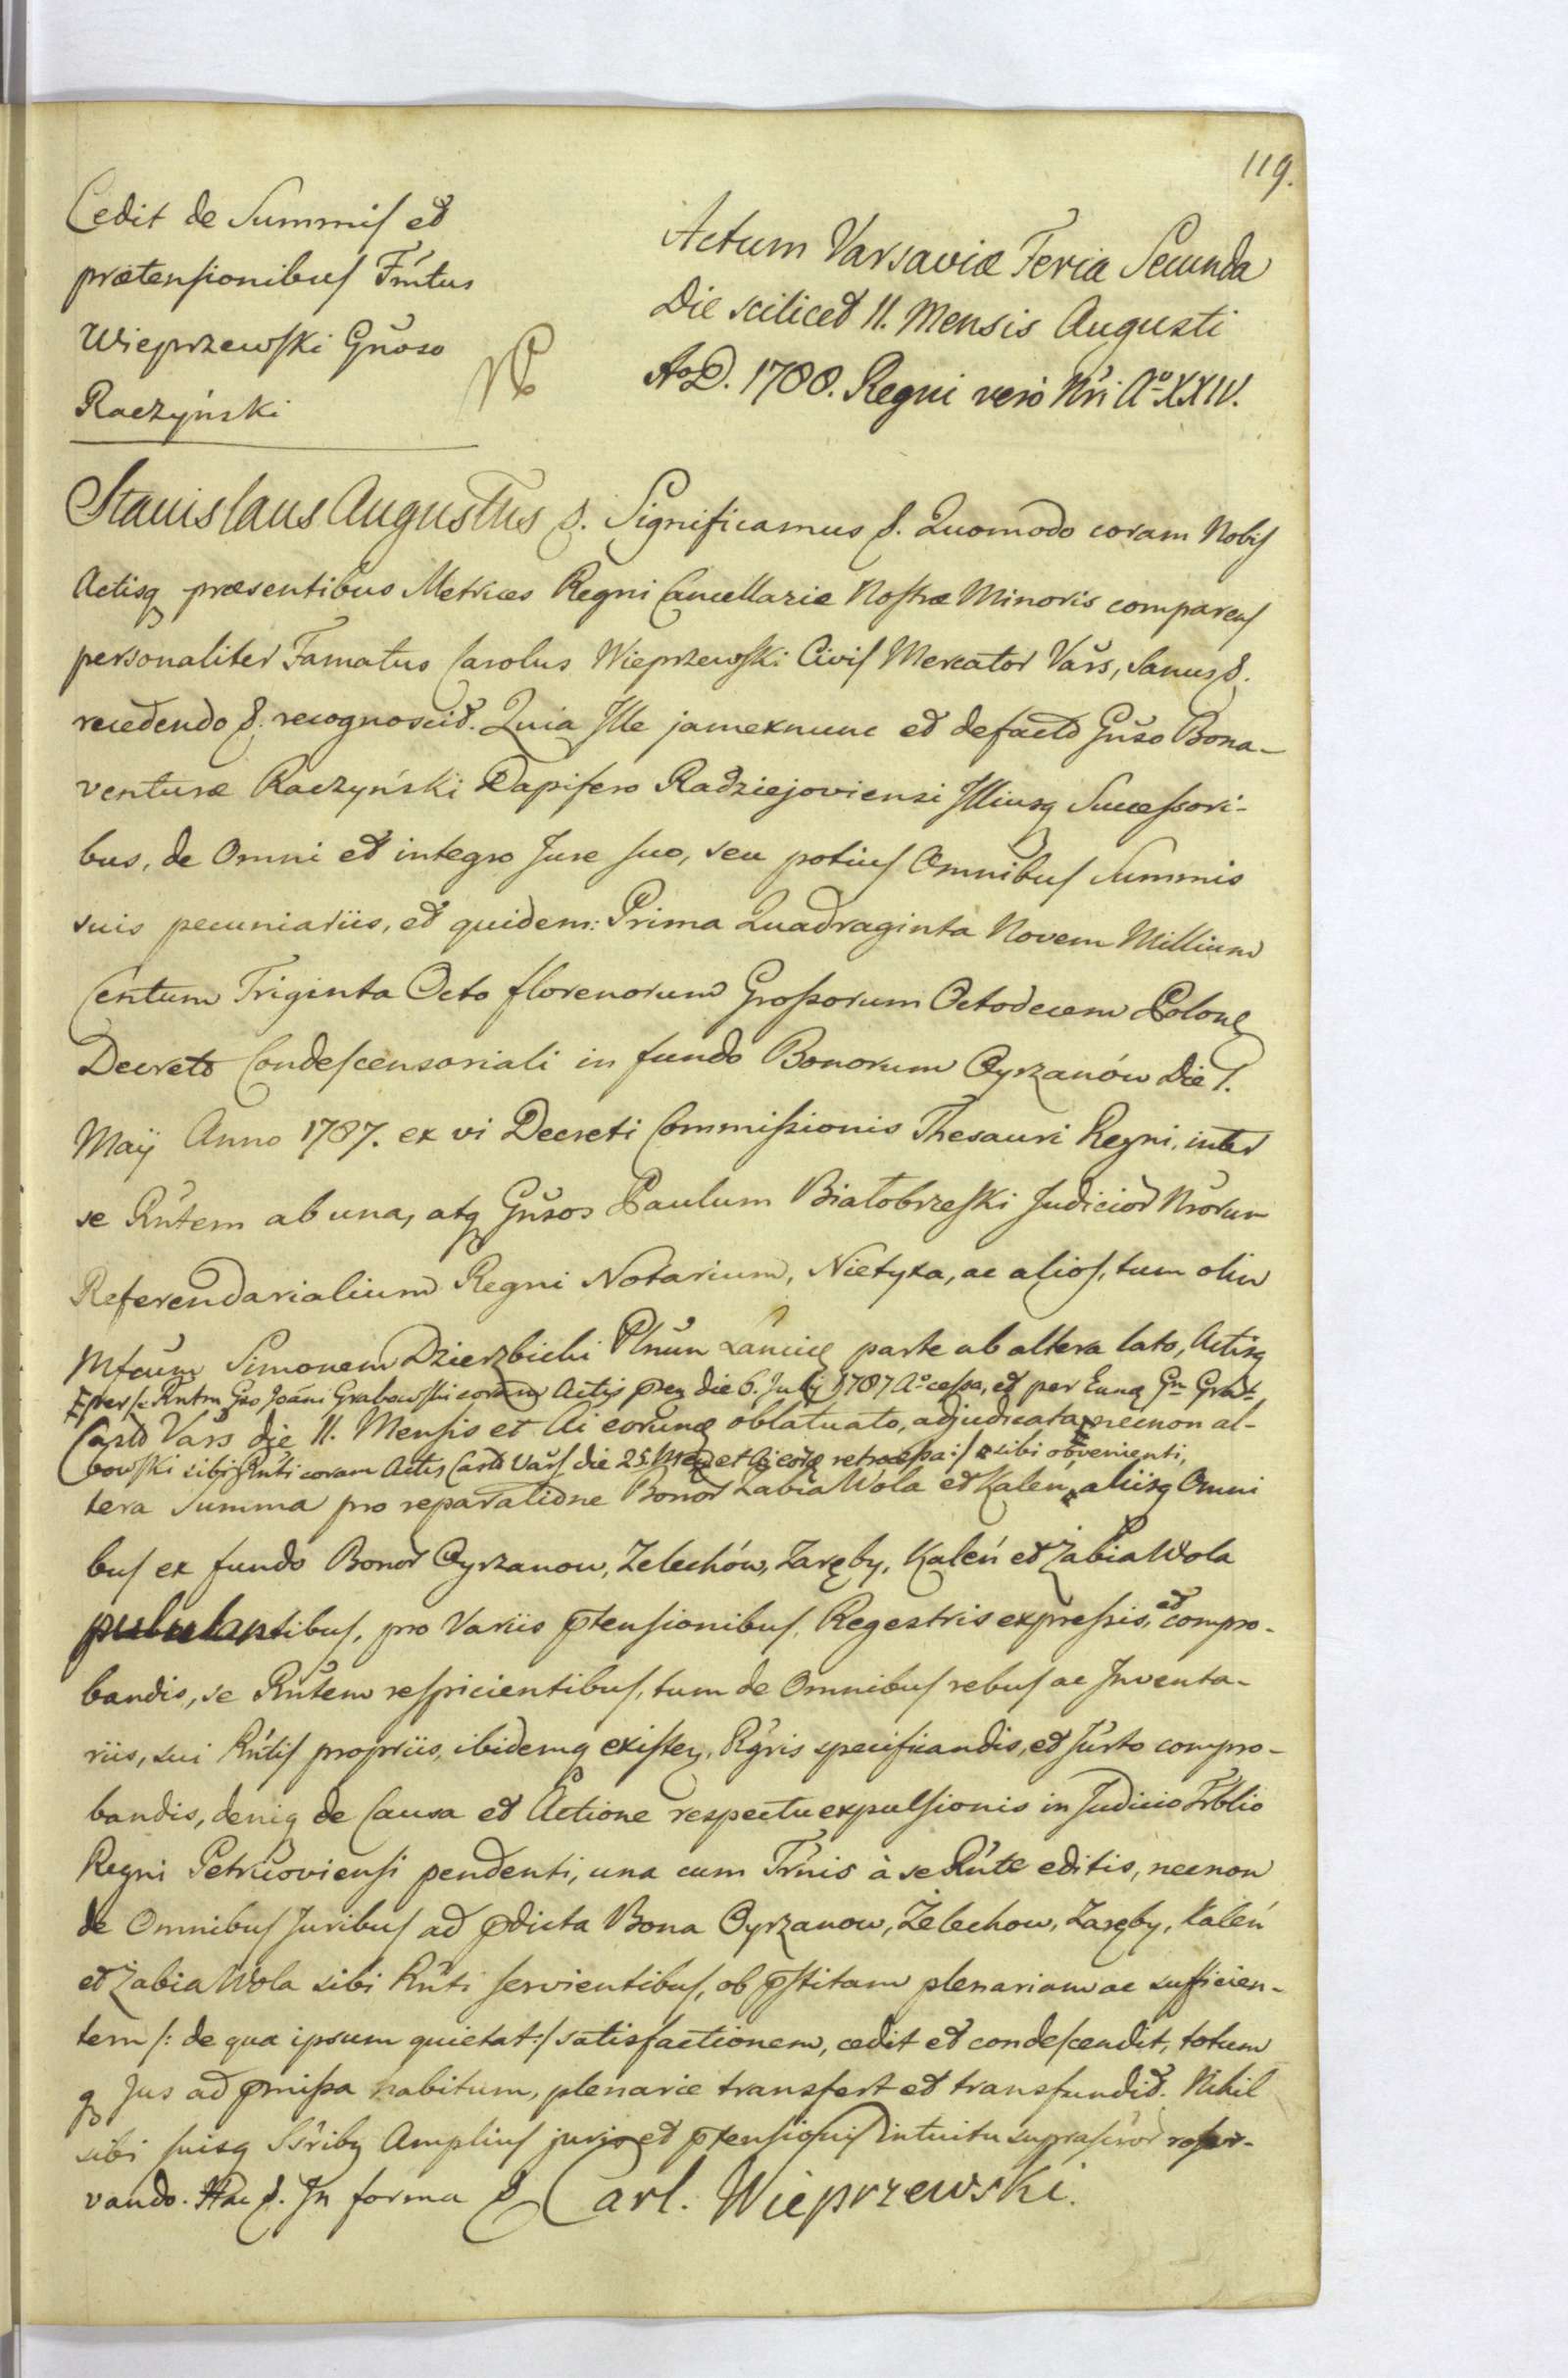 119.
Cedit de Summis et
prætensionibus Fmtus
Wieprzewski Gnoso
Raczyński
Actum Varsaviæ Feria Secunda
Die scilicet 11. Mensis Augusti
AoD. 1788. Regni vero Nri Ao XXIV.
Stanislaus Augustus &. Significamus &. Quomodo coram Nobis
Actisq præsentibus Metrices Regni Cancellariæ Nostræ Minoris comparens
personaliter Famatus Carolus Wieprzewski Civis Mercator Vars, Sanus &.
recedendo &. recognoscit. Quia Ille jamexnunc et defacto Gnso Bona-
venturæ Raczyński Dapifero Radziejoviensi Illiusq Successori-
bus, de Omni et integro Jure suo, seu potius Omnibus Summis
suis pecuniariis, et quidem: Prima Quadraginta Novem Millium
Centum Triginta Octo florenorum Grossorum Octodecem Polonq
Decreto Condescensoriali in fundo Bonorum Oyrzanów Die 1.
Maÿ Anno 1787. ex vi Decreti Commissionis Thesauri Regni, inter
se Rntem ab una, atq Gnsos Paulum Białobrzeski Judicior Nrorum
Referendarialium Regni Notarium, Nietyxa, ac alios, tum olim
Mfcum Simonem Dzierzbicki Pltnum Lancic parte ab altera lato, Actisq
per se Rntm Gso Joani Grabowski coram Actis prez die 6. July 1787 Ao cessa, et per Eunq Gn Gra-
Castr Vars die 11. Mensis et Ai eorunq oblatuato, adjudicata necnon al-
bowski sibi Rnti coram Actis Castr Vars die 25. Mens et Ai eorq retrocessa :/ sibi obvenienti,
tera Summa pro reparatione Bonor Zabia Wola et Kaleń, aliisq Omni
bus ex fundo Bonor Oyrzanow, Zelechów, Zaręby, Kaleń et Żabia Wola
pululantibus, pro Variis ptensionibus, Regestris expressis, et compro-
bandis, se Rntem respicientibus, tum de Omnibus rebus ac Inventa-
riis, sui Rntis propriis, ibidemq existen, Rgris specificandis, et Jurto compro-
bandis, deniq de Causa et Actione respectu expulsionis in Judicio Trblio
Regni Petricoviensi pendenti, una cum Trnis à se Rnte editis, necnon
de Omnibus Juribus ad pdicta Bona Oyrzanow, Żelechow, Zaręby, Kaleń
et Zabia Wola sibi Rnti servientibus, ob pstitam plenariam ac sufficien-
tem /: de qua ipsum quietat :/ satisfactionem, cedit et condescendit, totum
q Jus ad pmissa habitum, plenarie transfert et transfundit. Nihil
sibi suisq Ssribq Amplius juris et ptensionis intuitu suprascror reser-
vando. Hac &. In forma & Carl. Wieprzewski.